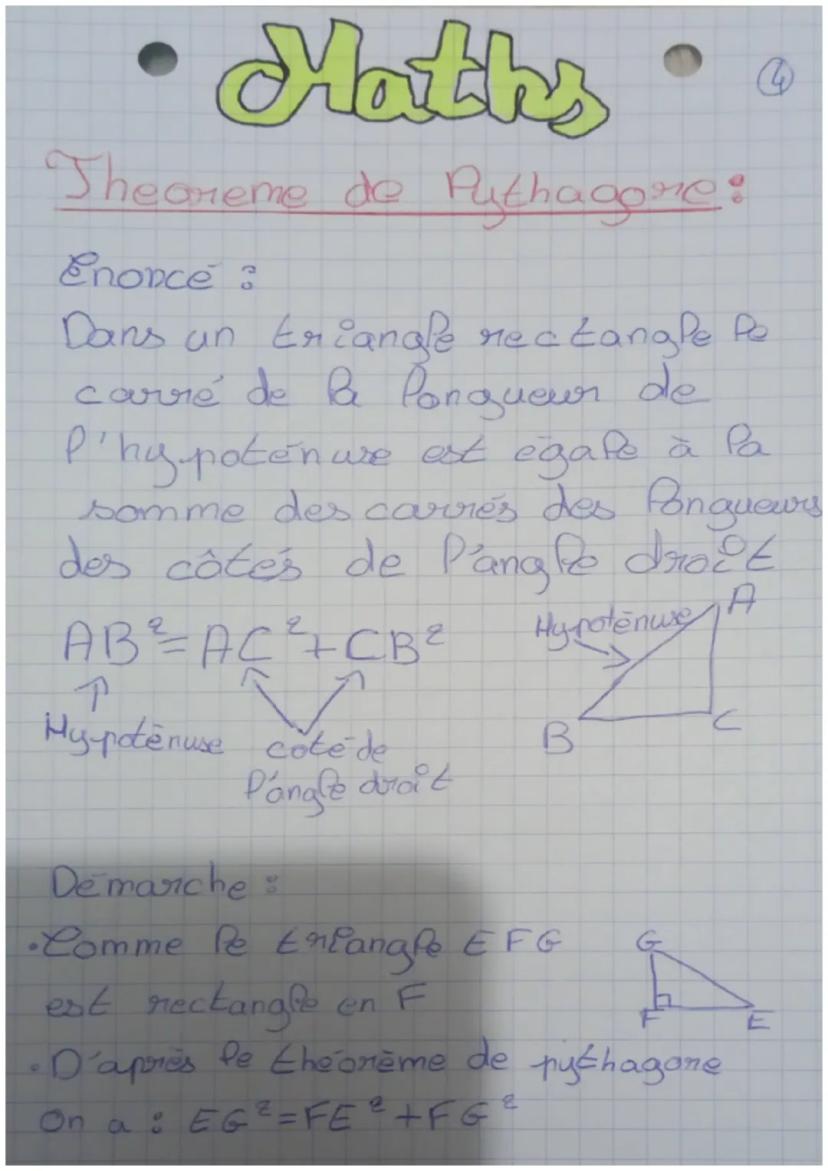 Maths
4
Theoreme de Pythagore :
Enoncé :
Dans un triangle rectangle le
carré de la longueur de
l'hypoténuse est égale à la
somme des carrés des longueurs
des côtés de l'angle droit
AB² = AC² + CB²
Hypoténuse
coté de
l'angle droit
Hypoténuse
A
B
C
Démarche :
• Comme le triangle EFG
est rectangle en F
G
F
E
• D'après le théorème de pythagore
On a : EG² = FE² + FG²